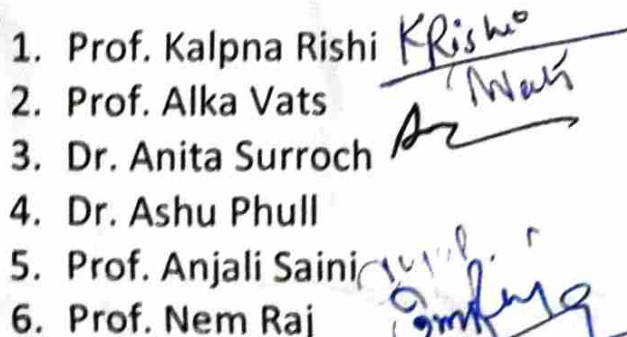 1. Prof. Kalpna Rishi KRishi
2. Prof. Alka Vats
3. Dr. Anita Surroch
4. Dr. Ashu Phull
5. Prof. Anjali Saini
6. Prof. Nem Raj